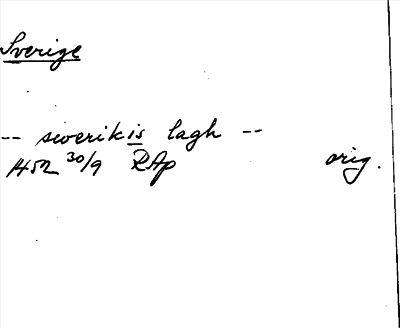 Sverige
-- swerikis lagh --
1452 30/9 RAp orig.